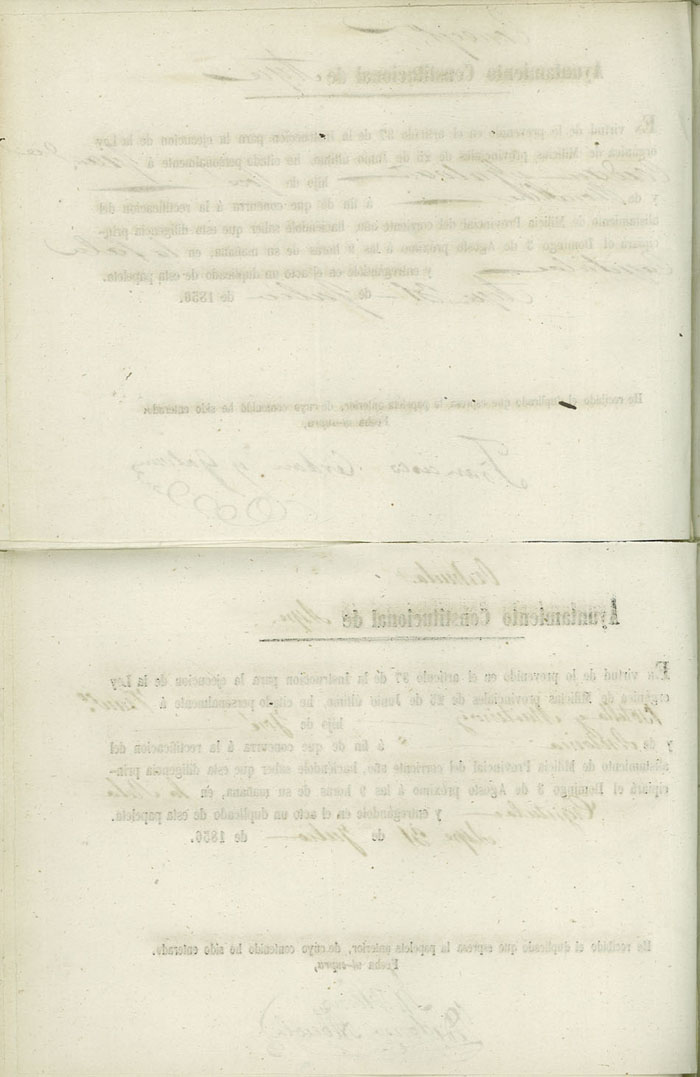 Ayuntamiento Constitucional de Aspe
En virtud de lo prevenido en el articulo 37 de la instruccion para la ejecucion de la Ley
orgánica de Milicias provinciales de 25 de Junio último, he citado personalmente á
hijo de José
y de á fin de que concurra á la rectificacion del
alistamiento de Milicia Provincial del corriente año, haciéndole saber que esta diligencia prin-
cipiará el Domingo 3 de Agosto próximo á las 9 horas de su mañana, en la Sala
Capitular y entregándole en el acto un duplicado de esta papeleta.
Aspe 31 de Julio de 1856.
He recibido el duplicado que espresa la papeleta anterior, de cuyo contenido he sido enterado
Fecha ut-supra,
Francisco Cerdan y
Cédula
Ayuntamiento Constitucional de Aspe
En virtud de lo prevenido en el articulo 37 de la Instruccion para la ejecucion de la Ley
orgánica de Milicias provinciales de 25 de Junio último, he citado personalmente á
y Martinez hijo de José
y de á fin de que concurra á la rectificacion del
alistamiento de Milicia Provincial del corriente año, haciéndole saber que esta diligencia prin-
cipiará el Domingo 3 de Agosto próximo á las 9 horas de su mañana, en la Sala
Capitular y entregándole en el acto un duplicado de esta papeleta.
Aspe 31 de Julio de 1856.
He recibido el duplicado que espresa la papeleta anterior, de cuyo contenido he sido enterado.
Fecha ut-supra,